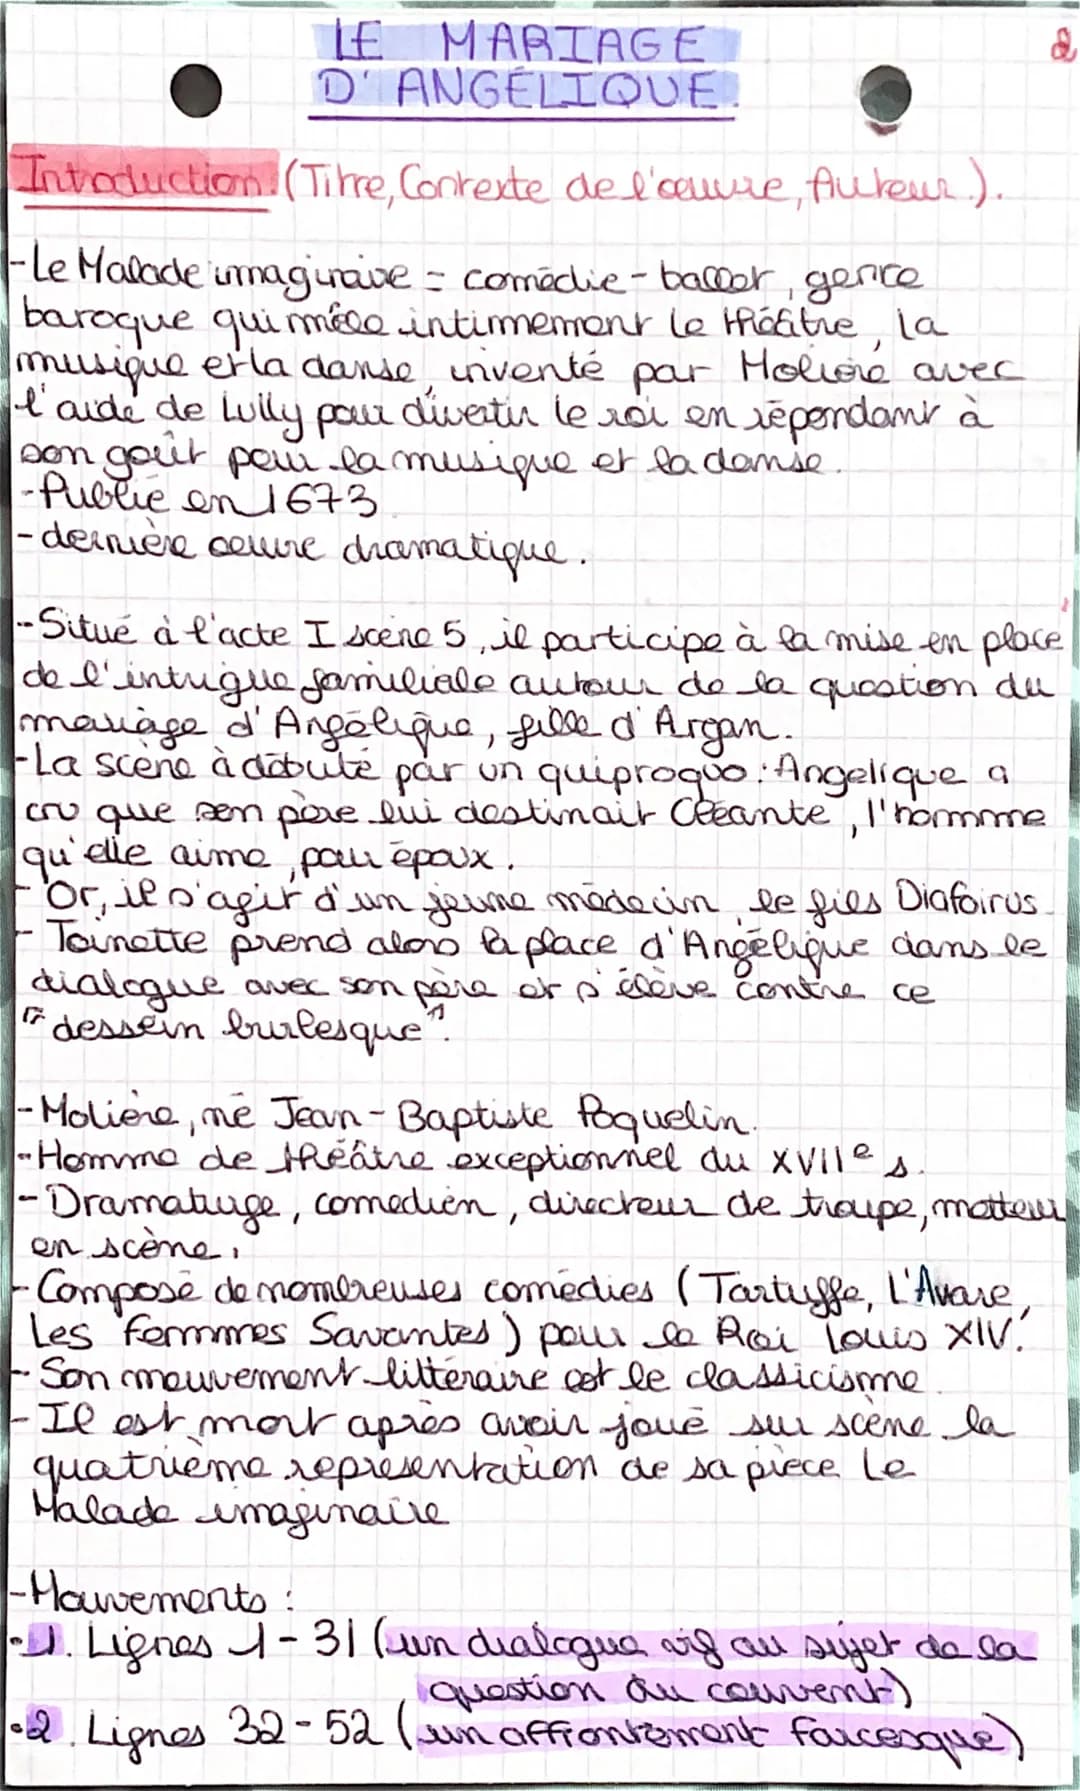 LE MARIAGE
D'ANGÉLIQUE.
2
Introduction: (Titre, Contexte de l'œuvre, Auteur.).
-Le Malade imaginaire = comédie-ballet, genre
baroque qui mêle intimement le théâtre, la
musique et la danse, inventé par Molière avec
l'aide de Lully pour divertir le roi en répondant à
son goût pour la musique et la danse.
-Publié en 1673
-dernière œuvre dramatique.
-Situé à l'acte I scène 5, il participe à la mise en place
de l'intrigue familiale autour de la question du
mariage d'Angélique, fille d'Argan.
-La scène à débuté par un quiproquo: Angelique a
cru que son père lui destinait Cléante, l'homme
qu'elle aime, pour époux.
-Or, il s'agit d'un jeune médecin, le fils Diafoirus.
- Toinette prend alors la place d'Angélique dans le
dialogue avec son père et s'élève contre ce
"dessein burlesque".
-Molière, né Jean-Baptiste Poquelin.
-Homme de théâtre exceptionnel du XVIIe s.
-Dramaturge, comedien, directeur de troupe, metteur
en scène.
-Compose de nombreuses comédies (Tartuffe, L'Avare,
Les Femmes Savantes) pour le Roi Louis XIV.
-Son mouvement littéraire est le classicisme.
-Il est mort après avoir joué sur scène la
quatrième représentation de sa pièce Le
Malade imaginaire
-Mouvements :
•1. Lignes 1-31 (un dialogue vif au sujet de la
question du couvent)
•2. Lignes 32-52 (un affrontement farcesque)